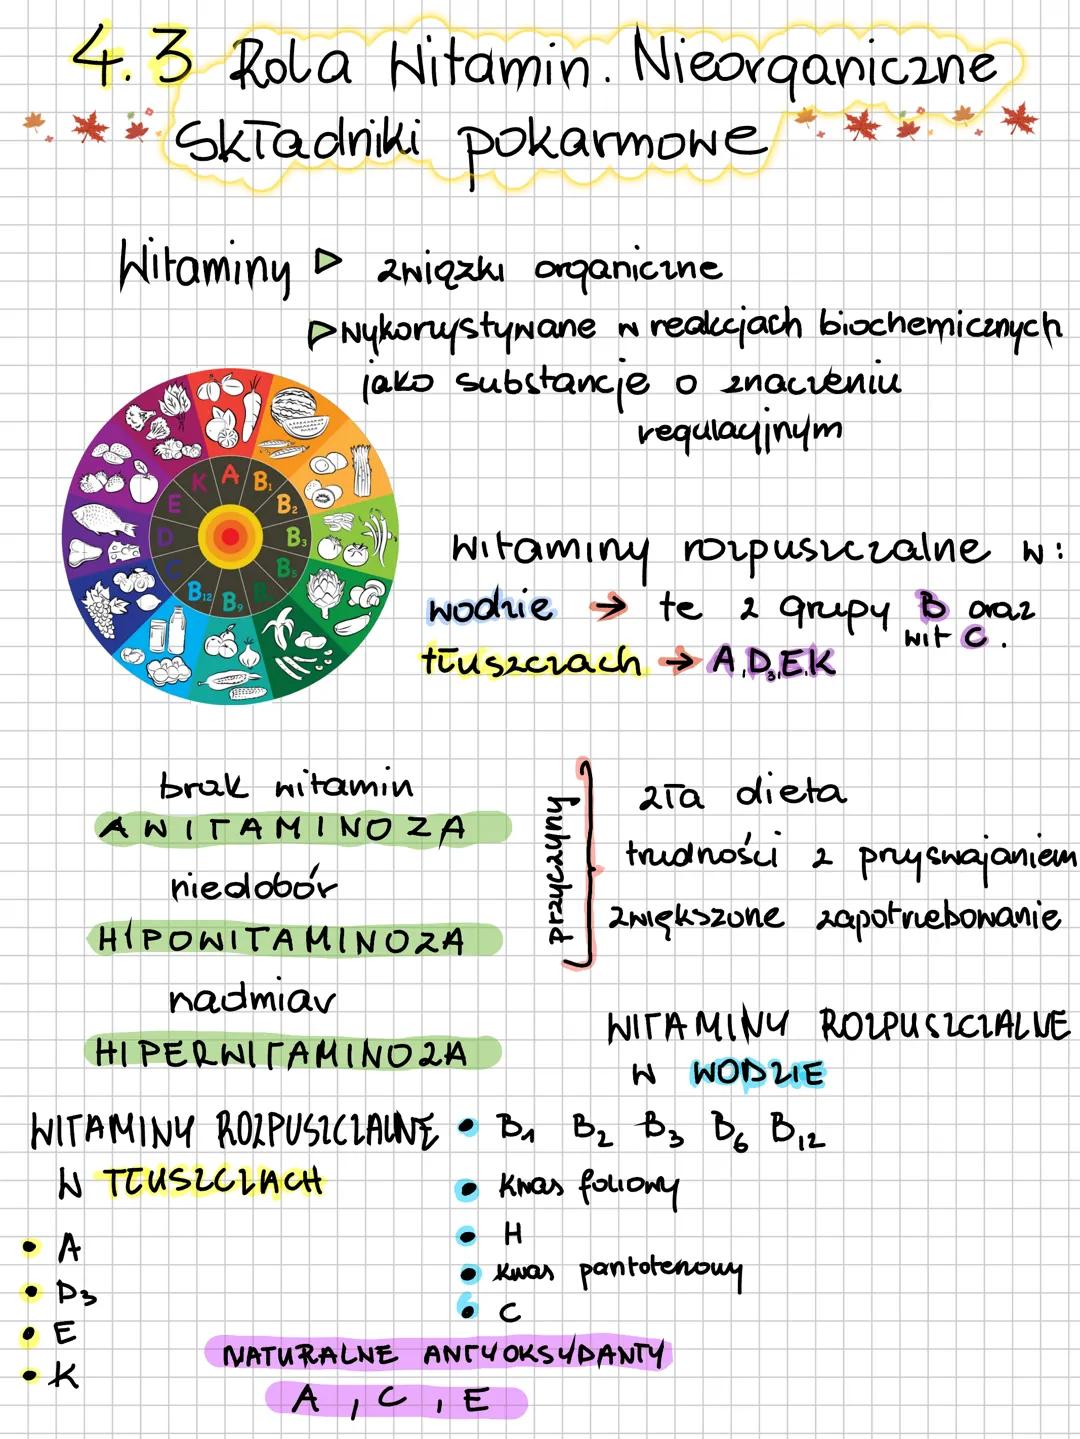 4.3 Rola Witamin. Nieorganiczne
składniki pokarmowe
Witaminy ▷ związki organiczne
▷ wykorzystywane w reakcjach biochemicznych
jako substancje o znaczeniu
regulacyjnym
K A B1 B2 B3 B5 B9 B12 C D E
witaminy rozpuszczalne w:
wodzie → te z grupy B oraz
wit C.
tłuszczach → A, D3, E, K
brak witamin
AWITAMINOZA
niedobór
HIPOWITAMINOZA
nadmiar
HIPERWITAMINOZA
przyczyny
zła dieta
trudności z przyswajaniem
zwiększone zapotrzebowanie
WITAMINY ROZPUSZCZALNE
W WODZIE
• B1 B2 B3 B6 B12
• kwas foliowy
• H
• kwas pantotenowy
• C
WITAMINY ROZPUSZCZALNE
W TŁUSZCZACH
• A
• D3
• E
• K
NATURALNE ANTYOKSYDANTY
A, C, E